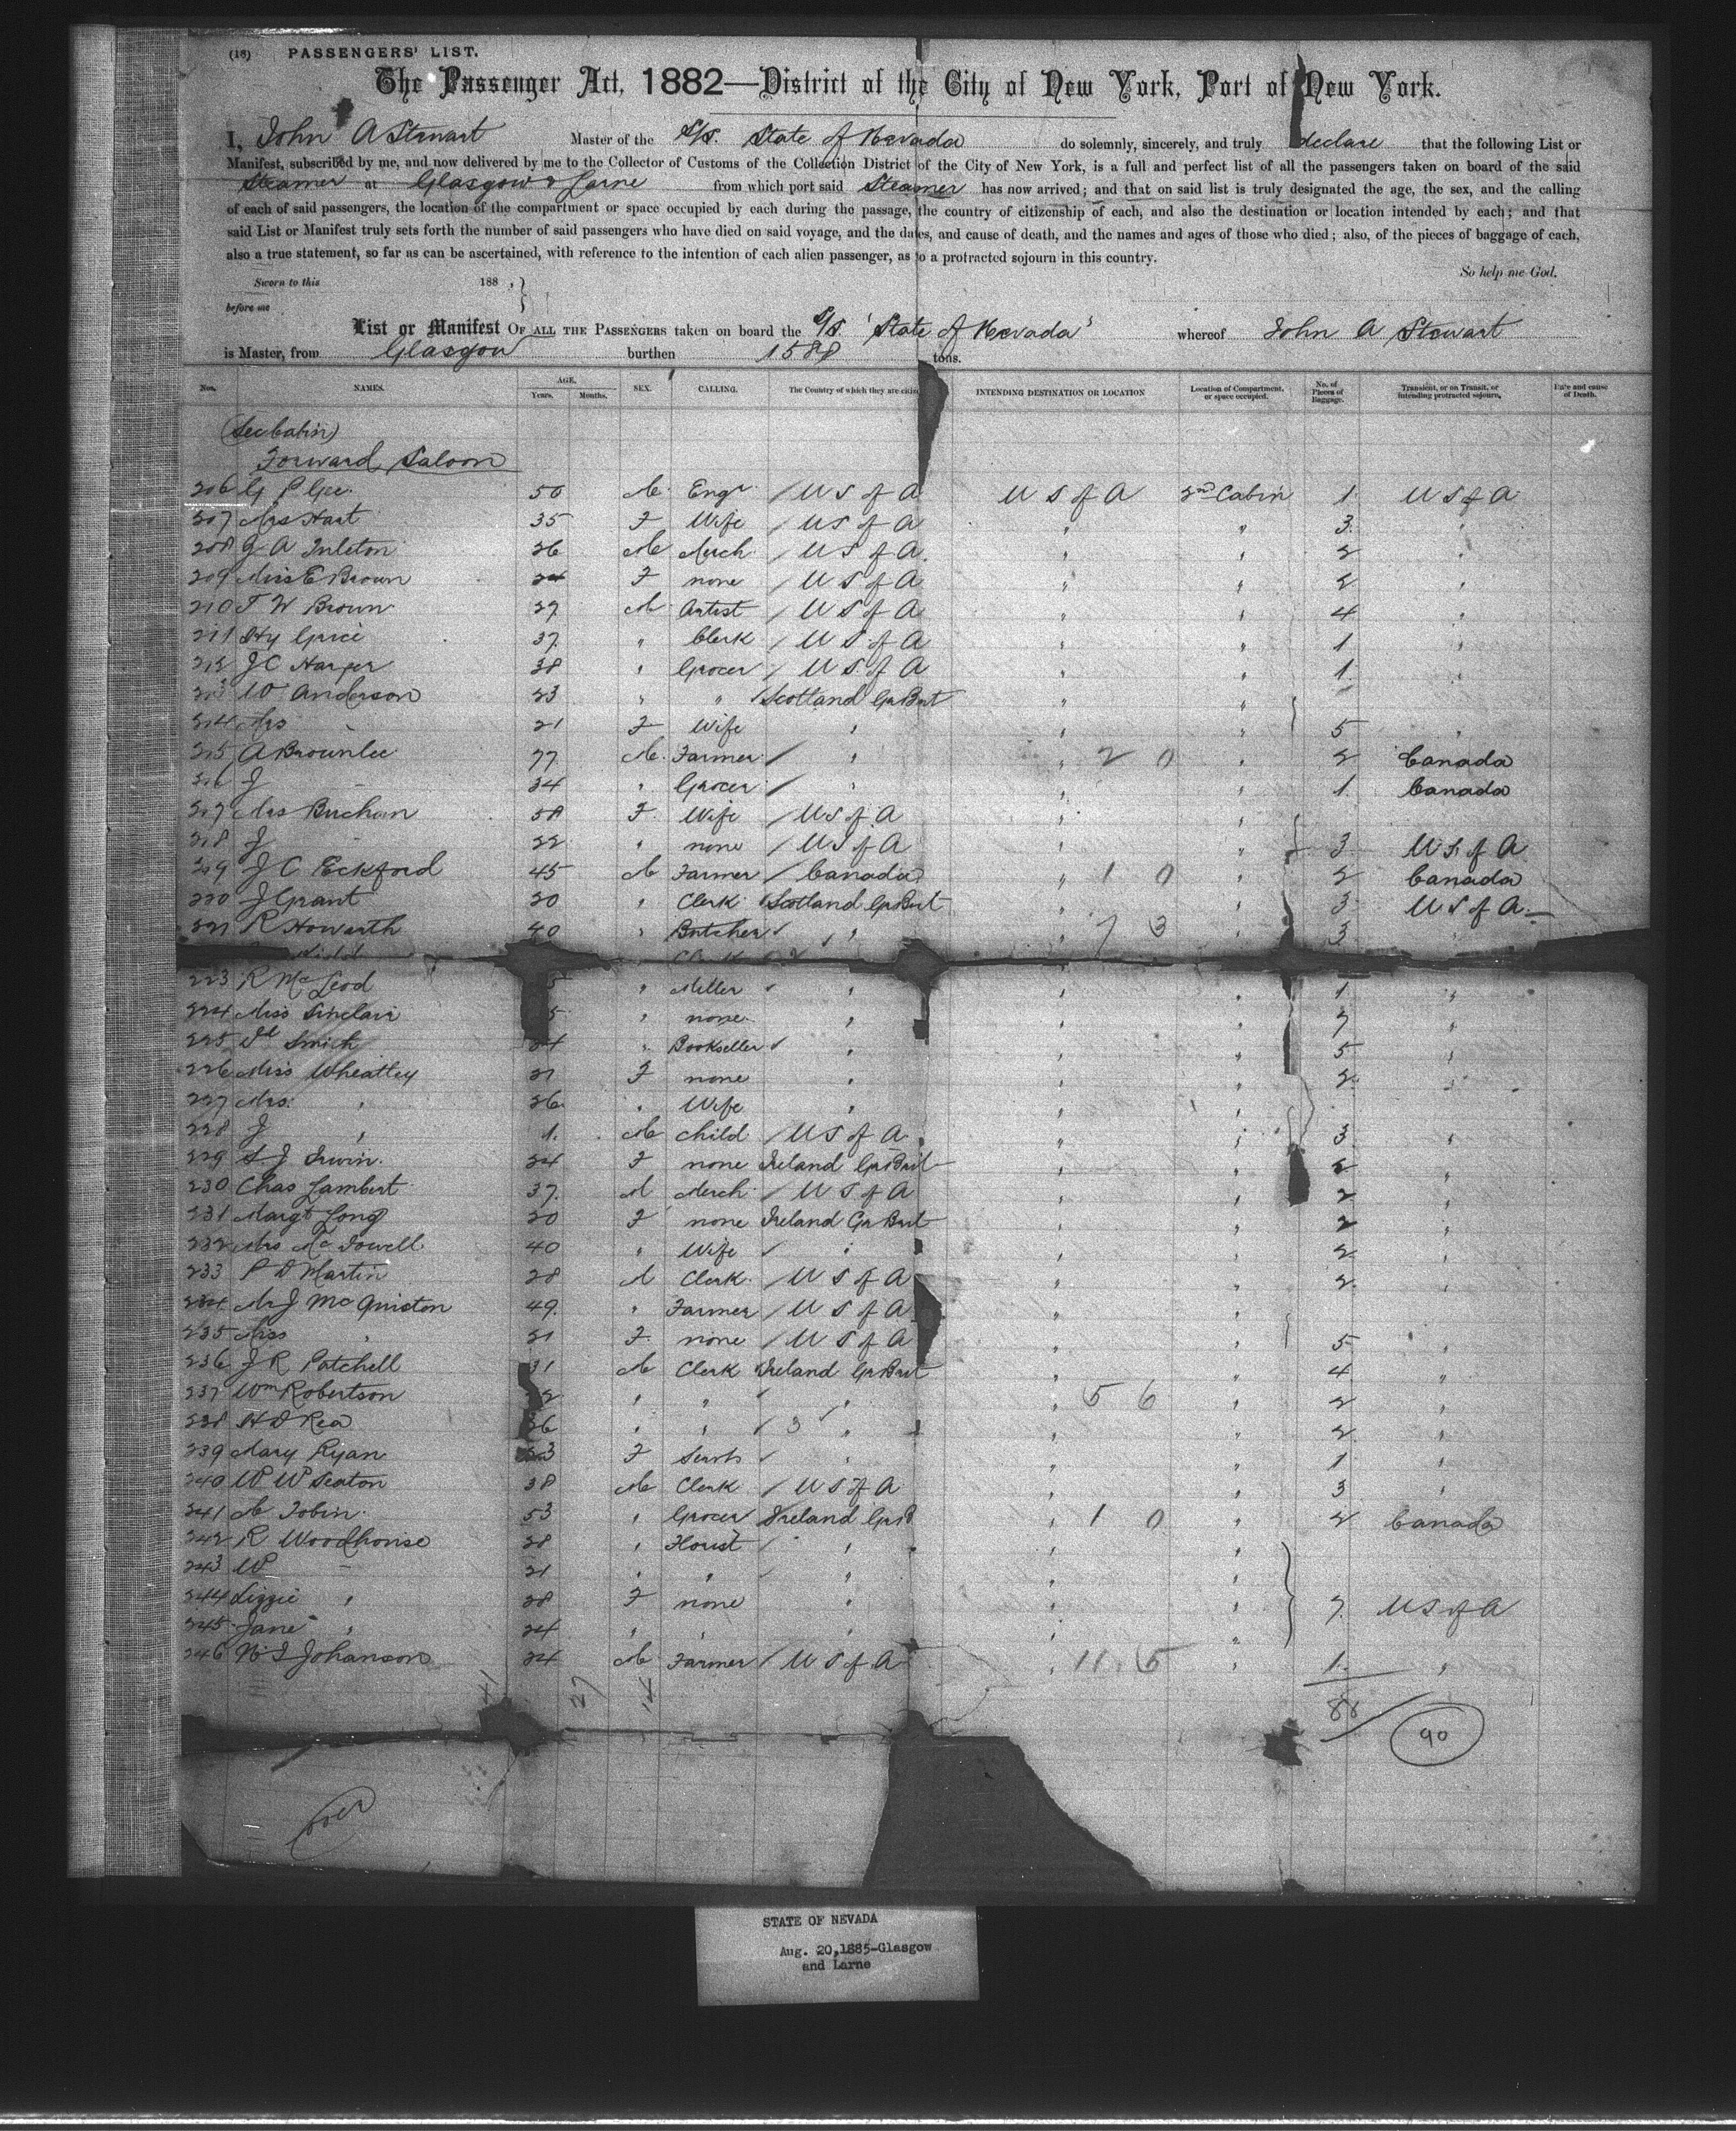 (18) PASSENGERS' LIST.
The Passenger Act, 1882—District of the City of New York, Port of New York.
I, John A Stewart Master of the S/S. State of Nevada do solemnly, sincerely, and truly declare that the following List or
Manifest, subscribed by me, and now delivered by me to the Collector of Customs of the Collection District of the City of New York, is a full and perfect list of all the passengers taken on board of the said
Steamer at Glasgow & Larne from which port said Steamer has now arrived; and that on said list is truly designated the age, the sex, and the calling
of each of said passengers, the location of the compartment or space occupied by each during the passage, the country of citizenship of each, and also the destination or location intended by each; and that
said List or Manifest truly sets forth the number of said passengers who have died on said voyage, and the dates, and cause of death, and the names and ages of those who died; also, of the pieces of baggage of each,
also a true statement, so far as can be ascertained, with reference to the intention of each alien passenger, as to a protracted sojourn in this country.
So help me God.
Sworn to this 188 ,
before me
List or Manifest OF ALL THE PASSENGERS taken on board the S/S. 'State of Nevada' whereof John A Stewart
is Master, from Glasgow burthen 1588 tons.
Nos. NAMES. AGE. Years. Months. SEX. CALLING. The Country of which they are citiz INTENDING DESTINATION OR LOCATION Location of Compartment, or space occupied. No. of Pieces of Baggage. Transient, or on Transit, or intending protracted sojourn. Date and cause of Death.
(Sec Cabin)
Forward Saloon
206 G P Gee 50 M Engr / U S of A U S of A 2nd Cabin 1 U S of A
207 Mrs Hart 35 F Wife / U S of A " " 3 "
208 26 M Merch / U S of A " " 2 "
209 Miss E Brown 24 F none / U S of A " " 2 "
210 T W Brown 29 M Artist / U S of A " " 4 "
211 Hy Grice 37 " Clerk / U S of A " " 1 "
212 J C Harper 38 " Grocer / U S of A " " 1 "
213 W Anderson 23 " " / Scotland Gr Brit " "
214 Mrs " 21 F Wife " " " 5 "
215 A Brownlee 77 M Farmer / " " 2 0 " 2 Canada
216 J " 34 " Grocer / " " " 1 Canada
217 Mrs Buchan 58 F Wife / U S of A " "
218 J " 22 " none / U S of A " " 3 U S of A
219 J C Eckford 45 M Farmer / Canada " 1 0 " 2 Canada
220 J Grant 20 " Clerk / Scotland Gr Brit " " 3 U S of A
221 R Howarth 40 " Butcher / " " 7 3 " 3 "
223 R McLeod 5 " Miller / " " " 1 "
224 Miss Sinclair 5 " none " " " 7 "
225 Smith 4 " Bookseller / " " " 5 "
226 Miss Wheatley 21 F none " " " 2 "
227 Mrs " 26 " Wife " " "
228 J " 1 M child / U S of A " " 3 "
229 S J Irwin 24 F none Ireland Gr Brit " " 2 "
230 Chas Lambert 37 M Merch / U S of A " " 2 "
231 Margt Long 20 F none Ireland Gr Brit " " 2 "
232 Mrs McDowell 40 " Wife / " " " 2 "
233 P D Martin 28 M Clerk / U S of A " " 2 "
234 McQuiston 49 " Farmer / U S of A " "
235 Miss " 21 F none / U S of A " " 5 "
236 J R Patchell 31 M Clerk Ireland Gr Brit " " 4 "
237 Wm Robertson 2 " " / " " 5 6 " 2 "
238 H D Rea 26 " " / 3 " " " 2 "
239 Mary Ryan 23 F Servt / " " " 1 "
240 W W Seaton 38 M Clerk / U S of A " " 3 "
241 M Tobin 53 " Grocer Ireland Gr B " 1 0 " 2 Canada
242 R Woodhouse 28 " Florist / " " "
243 W " 21 " " / " " "
244 Lizzie " 28 F none " " " 7 U S of A
245 Jane " 24 " " " " "
246 Johanson 24 M Farmer / U S of A " 11 5 " 1 "
41 27 14
88
90
over
STATE OF NEVADA
Aug. 20,1885-Glasgow
and Larne